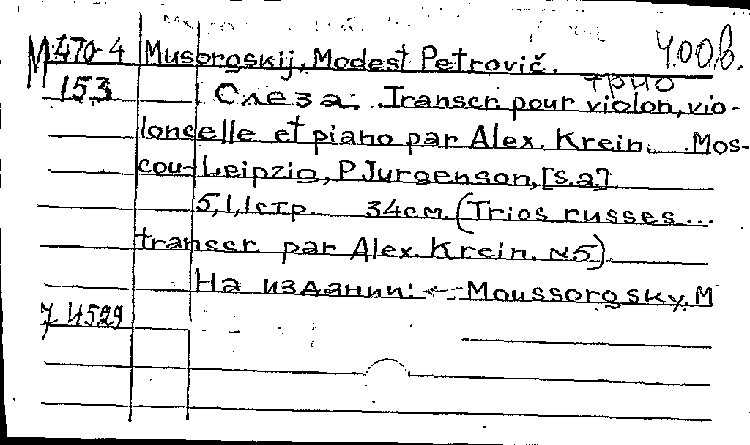 М 470-4 Musorgskij, Modest Petrovič. 4.00в.
153 трио
Слеза. Transcr. pour violon, vio-
loncelle et piano par Alex. Krein. Mos-
cou-Leipzig, P. Jurgenson, [s.a.]
5,1,1 стр. 34 см. (Trios russes...
transcr. par Alex. Krein. №5).
На издании: Moussorgsky, M